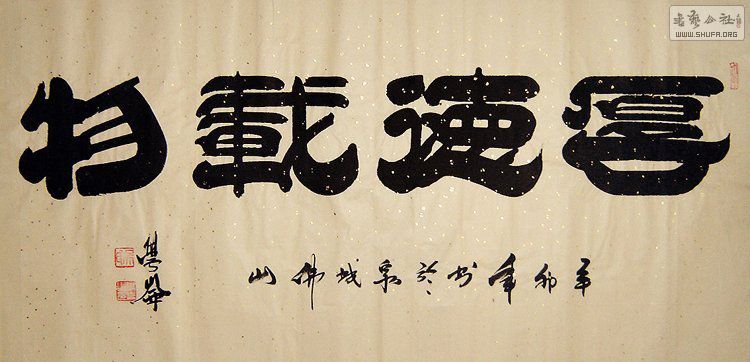 书藝公社
WWW.SHUFA.ORG
厚德載物
辛卯年书於泉城佛山